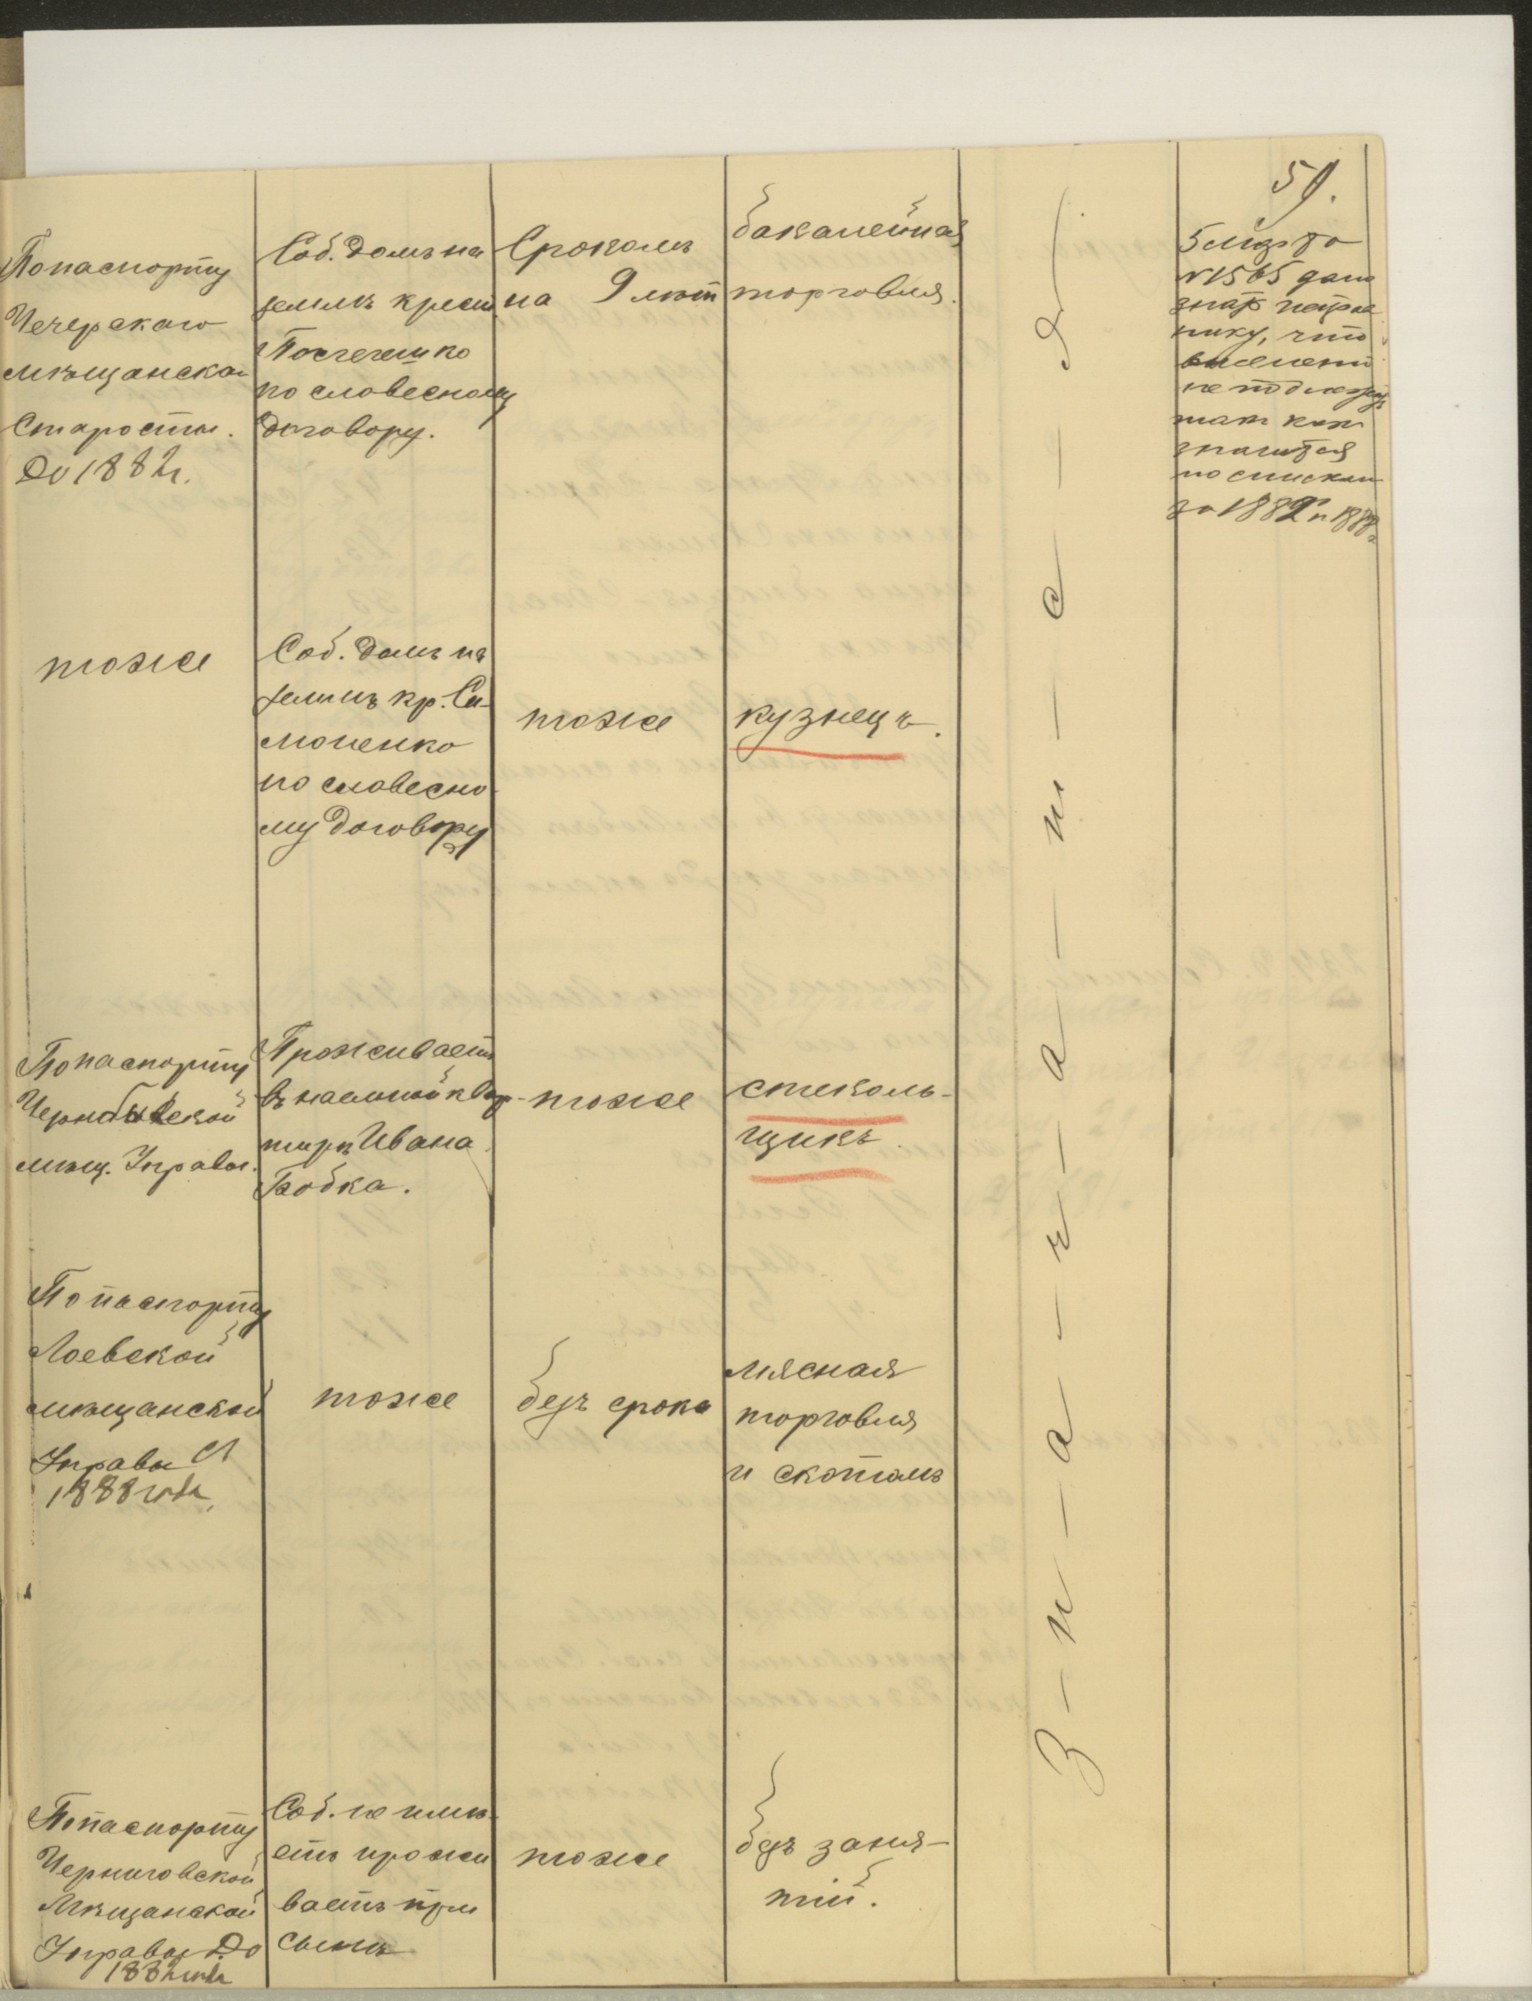 59.
По паспорту
Чечерскаго
мѣщанскаго
Старосты.
До 1882 г.
Соб. домъ на
землѣ крест.
по словесному
договору.
Срокомъ
на 9 лѣтъ
бакалейная
торговля.
5 Марта
№ 1565 дано
знать
нику, что
выселенію
не подлежитъ
такъ какъ
значится
по спискам
за 1882 и 1888 г.
тоже
Соб. домъ на
землѣ кр. Си-
моненко
по словесно-
му договору
тоже
кузнецъ.
По паспорту
мѣщ. Управы.
Проживаетъ
въ наемной квар-
тирѣ Ивана
Бобка.
тоже
стеколь-
щикъ.
По паспорту
Лоевской
мѣщанской
Управы съ
1888 года
тоже
безъ срока
мясная
торговля
и скотомъ
По паспорту
Черниговской
Мѣщанской
Управы До
1882 года
Соб. не имѣ-
етъ прожи
ваетъ при
сынѣ
тоже
безъ заня-
тій.
З-н-а-ч-а-и-е-я